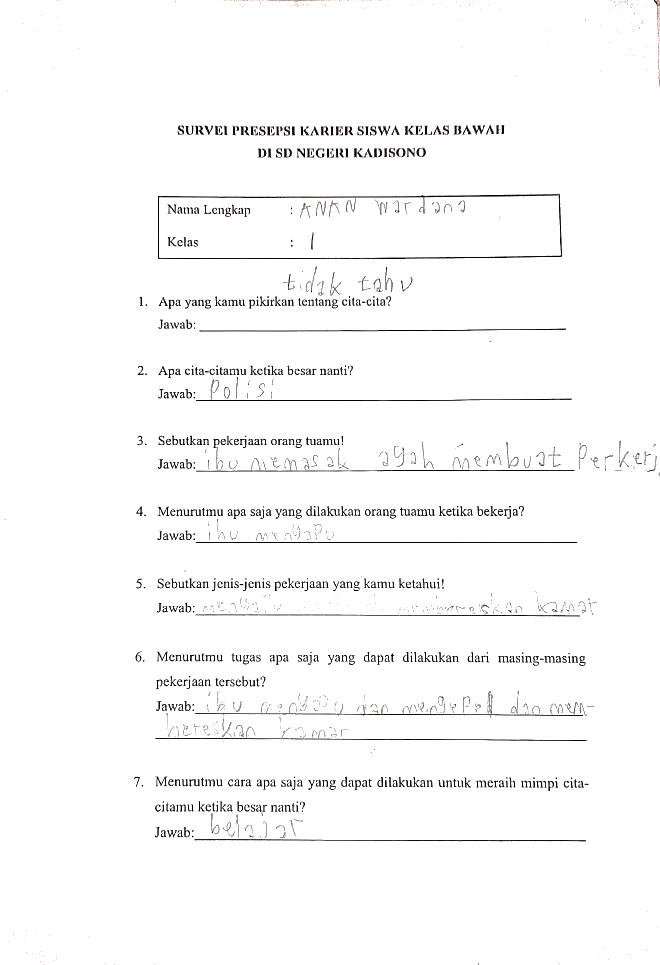 SURVEI PRESEPSI KARIER SISWA KELAS BAWAH
DI SD NEGERI KADISONO
Nama Lengkap : ANAN Wardana
Kelas : 1
tidak tahu
1. Apa yang kamu pikirkan tentang cita-cita?
Jawab:
2. Apa cita-citamu ketika besar nanti?
Jawab: Polisi
3. Sebutkan pekerjaan orang tuamu!
Jawab: ibu memasak ayah membuat Perkerj
4. Menurutmu apa saja yang dilakukan orang tuamu ketika bekerja?
Jawab: ibu menyapu
5. Sebutkan jenis-jenis pekerjaan yang kamu ketahui!
Jawab: membereskan kamar
6. Menurutmu tugas apa saja yang dapat dilakukan dari masing-masing
pekerjaan tersebut?
Jawab: ibu menyapu dan mengepel dan mem-
bereskan kamar
7. Menurutmu cara apa saja yang dapat dilakukan untuk meraih mimpi cita-
citamu ketika besar nanti?
Jawab: belajar